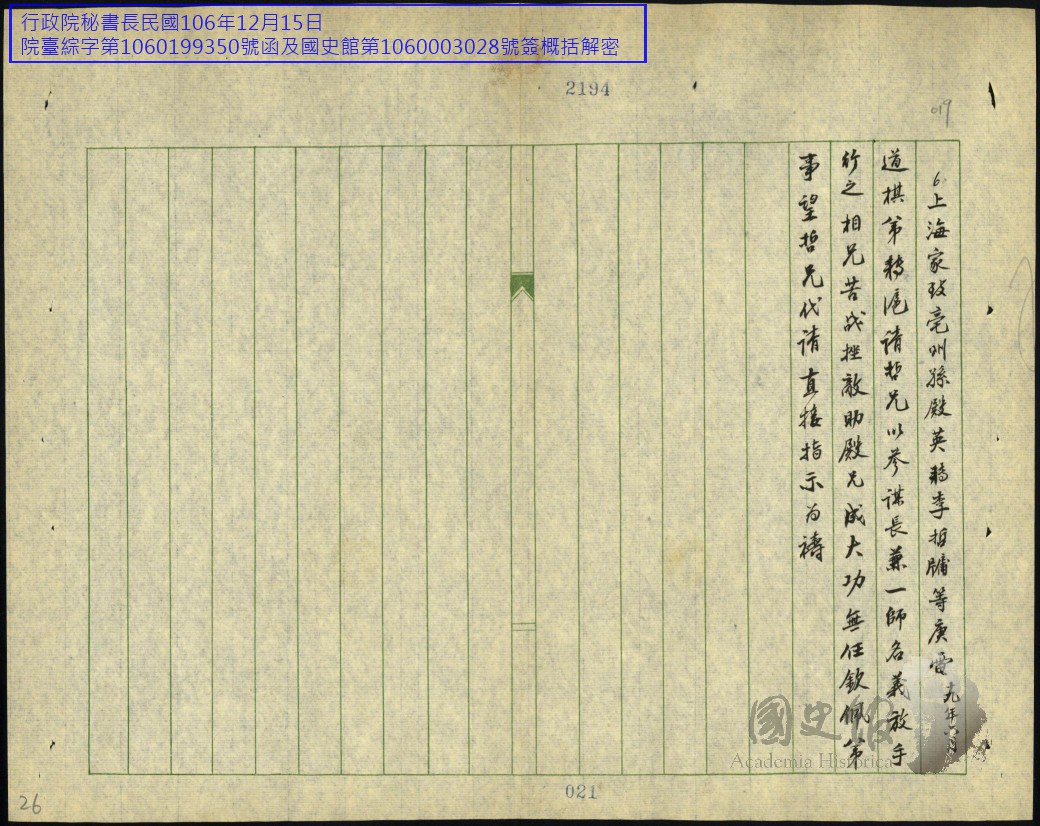 行政院秘書長民國106年12月15日
院臺綜字第1060199350號函及國史館第1060003028號簽概括解密
2194
019
6.上海家致亳州孫殿英轉李相牗等庚電 十九年六月
道棋第轉滬請哲兄以參謀長兼一師名義放手
行之相兄苦战挫敵助殿兄成大功無任欽佩第
事望哲兄代請直接指示为禱
國史館
Academia Historica
021
26